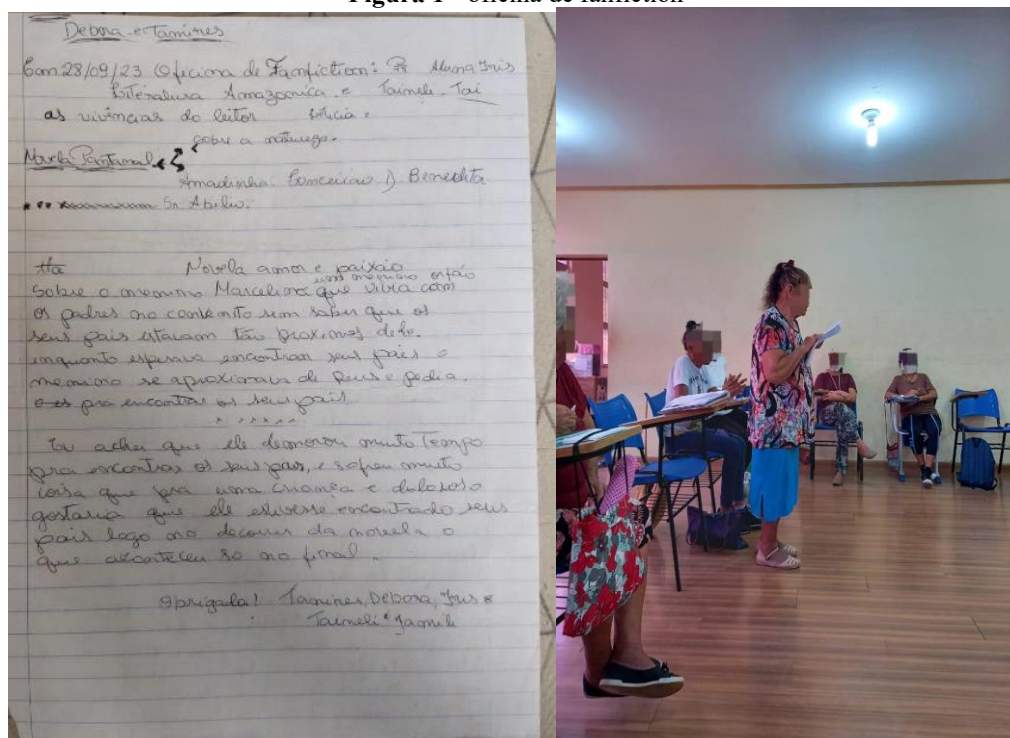 Figura 1 - oficina de fanfiction
Debora e Tamires
Em 28/09/23 Oficina de Fanfiction: Aluna Iris
Literatura Amazonica e Taineli - Tai
as vivências do leitor
sobre a natureza.
Conceicao D Benedita
Sr Abilio.
Novela amor e paixão
um menino orfão
Sobre o menino Marcelino que vivia com
os padres no convento sem saber que os
seus pais estavam tão proximos dele.
inquanto esperava encontrar seus pais o
menino se aproximava de Deus e pedia.
pra encontrar os seus pais
Eu achei que ele demorou muito Tempo
pra encontras os seus pais, e sofreu muito
coisa que pra uma criança e doloroso
gostaria que ele estivesse encontrado seus
pais logo no decorrer da novela o
que aconteceu so no final.
Obrigada! Tamires, Debora, Iris e
Taineli e Jamile